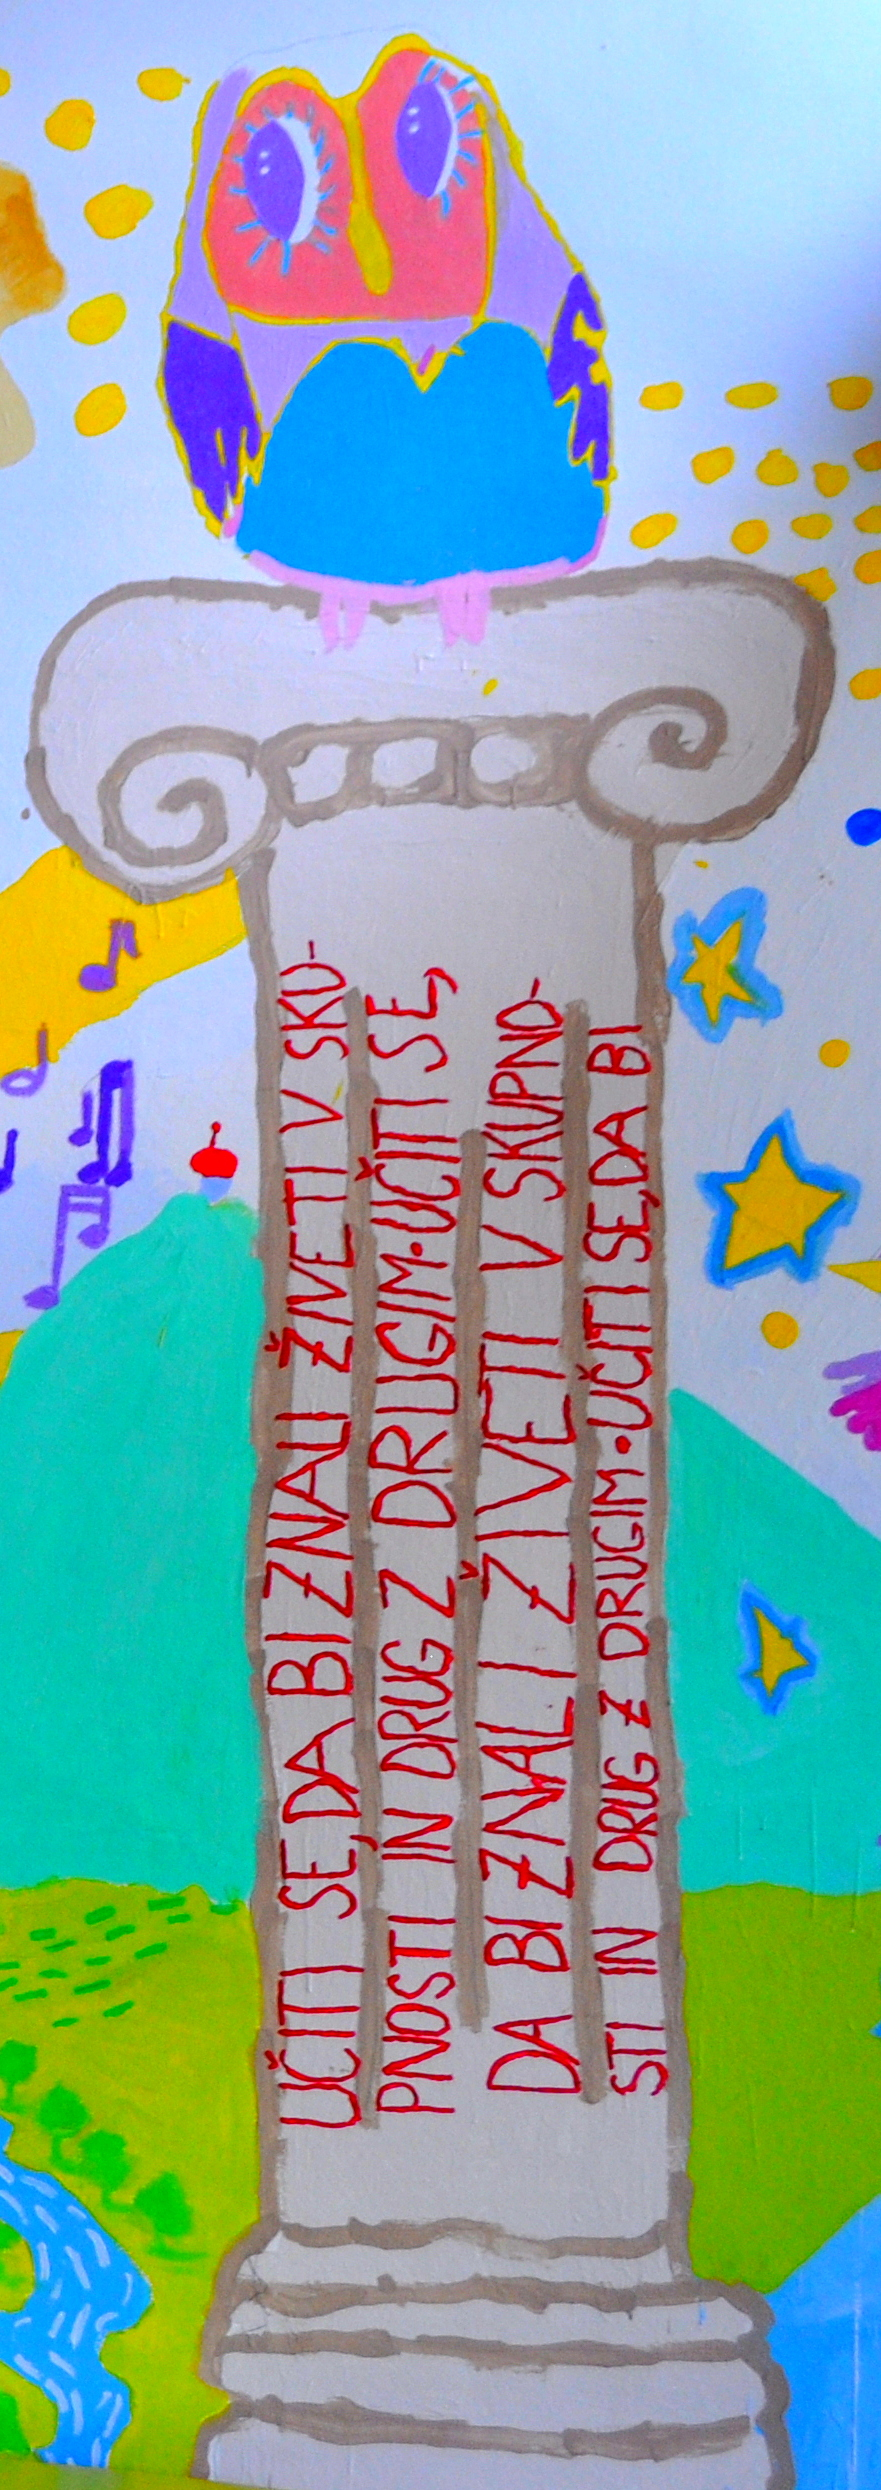 UČITI SE, DA BI ZNALI ŽIVETI V SKU-
PNOSTI IN DRUG Z DRUGIM • UČITI SE,
DA BI ZNALI ŽIVETI V SKUPNO-
STI IN DRUG Z DRUGIM • UČITI SE, DA BI